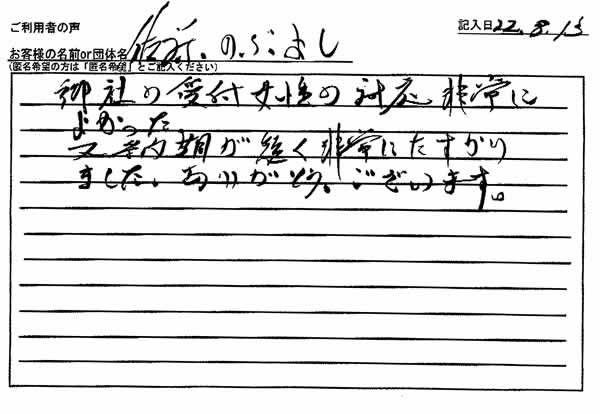 ご利用者の声
記入日22.8.13
お客様の名前or団体名 佐藤.のぶよし
(匿名希望の方は「匿名希望」とご記入ください)
御社の受付女性の対応非常に
よかった
又納期が短く非常にたすかり
ました、ありがとう、ございます。